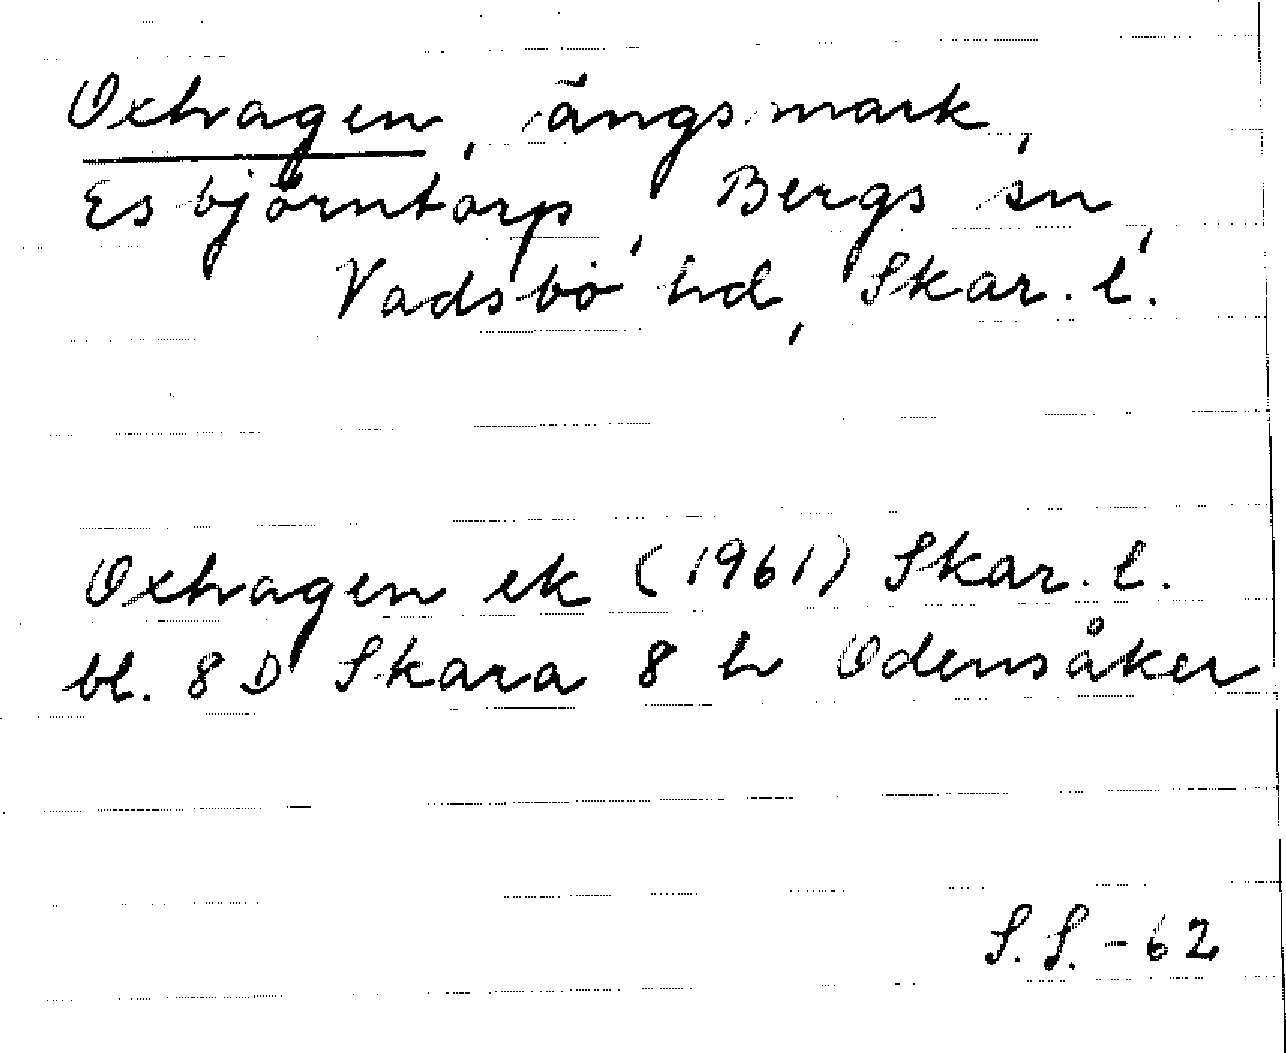 Oxhagen, ängsmark,
Esbjörntorp, Bergs sn,
Vadsbo hd, Skar. l.
Oxhagen ek (1961) Skar. l.
bl. 8 D Skara 8 h Odensåker
S. S. - 62